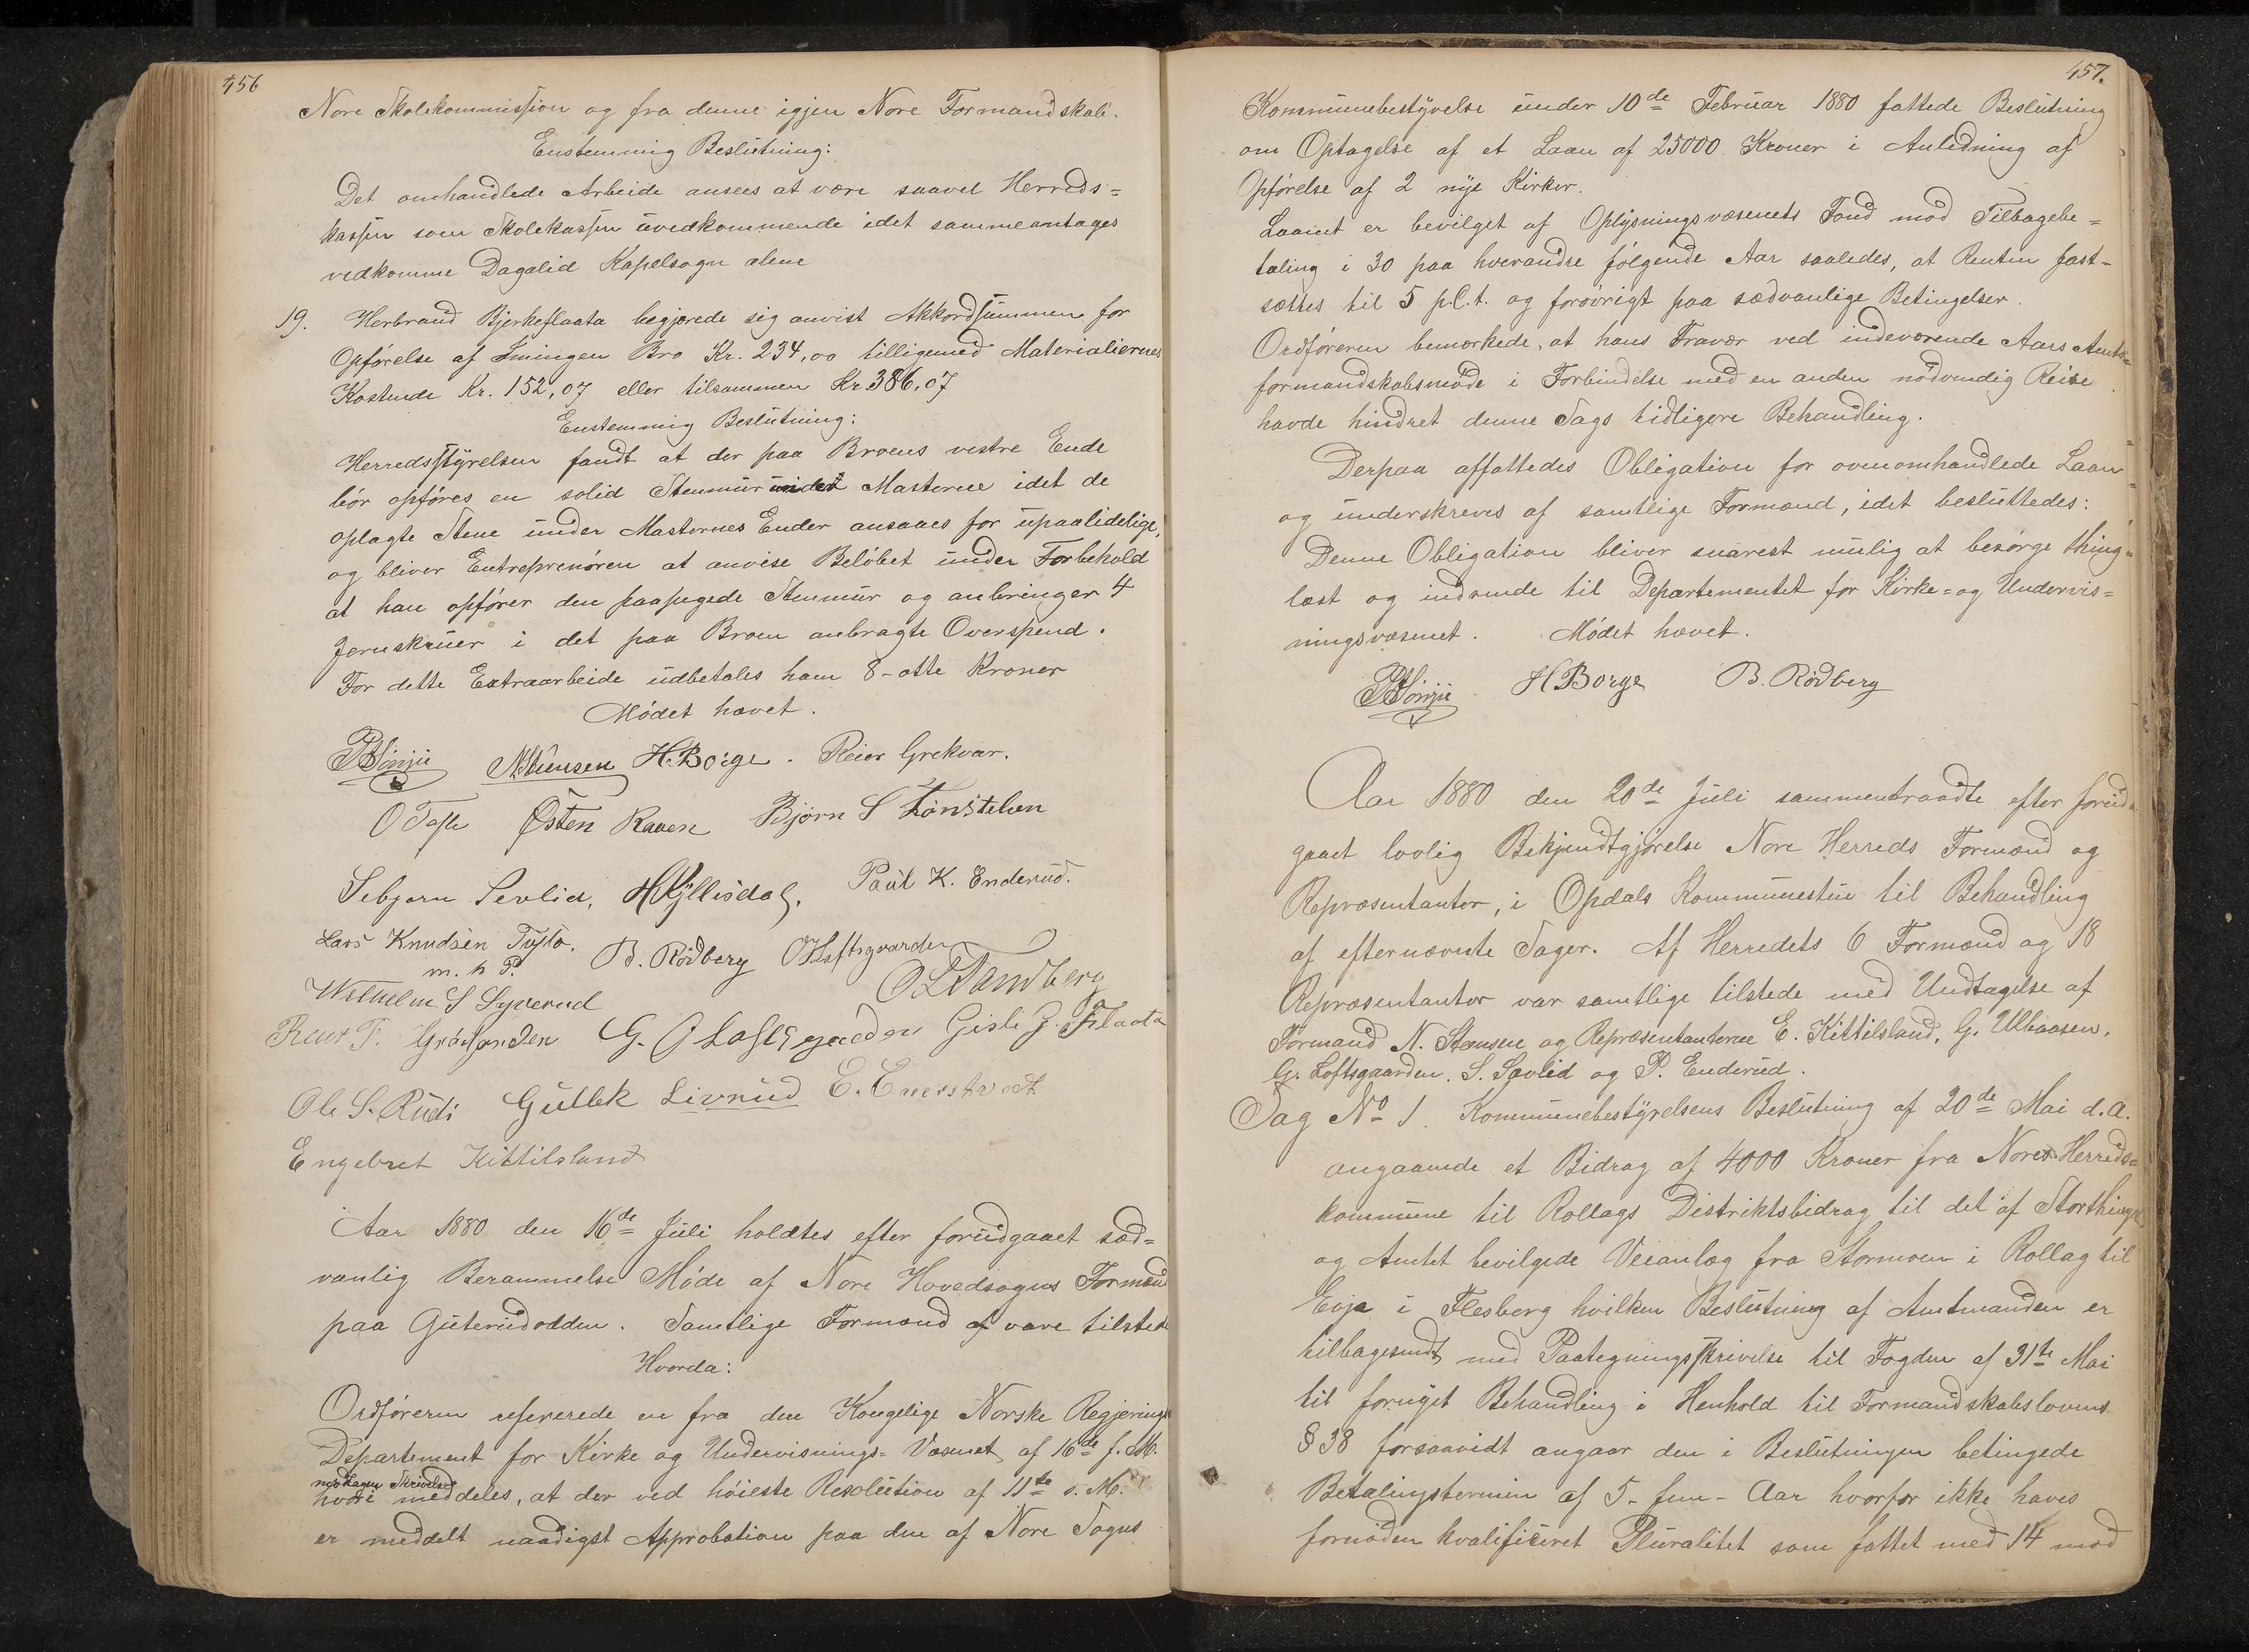 456
Nore Skolekommission og fra denne igjen Nore Formandskab.
Enstemmig Beslutning:
Det omhandlede Arbeide ansees at være saavel Herreds=
kassen som Skolekassen uvedkommende idet samme antages
vedkomme Dagalid Kapelsogn alene
19. Herbrand Bjerkeflaata begjærede sig anvist Akkordsummen for
Opførelse af Smingen Bro Kr. 234,00 tilligemed Materialiernes
Kostende Kr. 152,07 eller tilsammen Kr 386,07
Enstemmig Beslutning:
Herredsstyrelsen fandt at der paa Broens vestre Ende
bør opføres en solid Stenmur under Masterne idet de
oplagte Stene under Masternes Ender ansaaes for upaalidelige,
og bliver Entreprenøren at anvise Beløbet under Forbehold
at han opfører den paapegede Stenmur og anbringer 4
Jernskruer i det paa Broen anbragte Overspend.
For dette Extraarbeide udbetales ham 8-otte Kroner
Mødet hævet.
H. Borge. Reier Grekvar.
Østen Raaen Bjørn S
Sebjørn Sevlid, Paul K. Enderud.
Lars Knudsen Tufto. B. Rødberg O Loftsgaarden
m. h P. O. Sandberg
Wilhelm S Syverud
G. O Loftsgaarden Gisle J. Flaata
Ole S. Rudi Gullek Livrud E. Enerstvedt
Engebret Kittilsland
Aar 1880 den 16de Juli holdtes efter forudgaaet sæd=
vanlig Berammelse Møde af Nore Hovedsogns Formænd
paa Guterudodden. Samtlige Formænd af vare tilstede
Hvorda:
Ordføreren refererede en fra den Kongelige Norske Regjerings
Departement for Kirke og Undervisnings= Væsenet af 16de f. M.
modtagen Skrivelse
hvori meddeles, at der ved høieste Resolution af 11te s. M.
er meddelt naadigst Approbation paa den af Nore Sogns
457.
Kommunebestyrelse under 10de Februar 1880 fattede Beslutning
om Optagelse af et Laan af 25000 Kroner i Anledning af
Opførelse af 2 nye Kirker.
Laanet er bevilget af Oplysningsvæsenets Fond mod Tilbagebe=
taling i 30 paa hverandre følgende Aar saaledes, at Renten fast-
sættes til 5 p.C.t. og forøvrigt paa sædvanlige Betingelser.
Ordføreren bemærkede, at hans Fravær ved indeværende Aars Amts=
formandskabsmøde i Forbindelse med en anden nødvendig Reise
havde hindret denne Sags tidligere Behandling.
Derpaa affattedes Obligation for ovenomhandlede Laan
og underskreves af samtlige Formænd, idet besluttedes:
Denne Obligation bliver snarest mulig at besørge thing=
læst og indsende til Departementet for Kirke= og Undervis=
ningsvæsenet. Mødet hævet.
H Borge B. Rødberg
Aar 1880 den 20de Juli sammentraadte efter forud
gaaet lovlig Bekjendtgjørelse Nore Herreds Formænd og
Repræsentanter, i Opdals Kommunestue til Behandling
af efternævnte Sager. Af Herredets 6 Formænd og 18
Repræsentanter var samtlige tilstede med Undtagelse af
Formand N. Steensen og Repræsentanterne E. Kittilsland, G. Ulbaasen,
G. Loftsgaarden, S. Sævlid og P. Enderud.
Sag No 1. Kommunebestyrelsens Beslutning af 20de Mai d.a.
angaaende et Bidrag af 4000 Kroner fra Nore Herreds=
kommune til Rollags Distriktsbidrag til det af Storthinget
og Amtet bevilgede Veianlæg fra Stormoen i Rollag til
Evje i Flesberg hvilken Beslutning af Amtmanden er
tilbagesendt med Paategningsskrivelse til Fogden af 31te Mai
til fornyet Behandling i Henhold til Formandskabslovens
§ 38 forsaavidt angaar den i Beslutningen betingede
Betalingstermin af 5- fem- Aar hvorfor ikke haves
fornøden kvalificeret Pluralitet som fattet med 14 mod